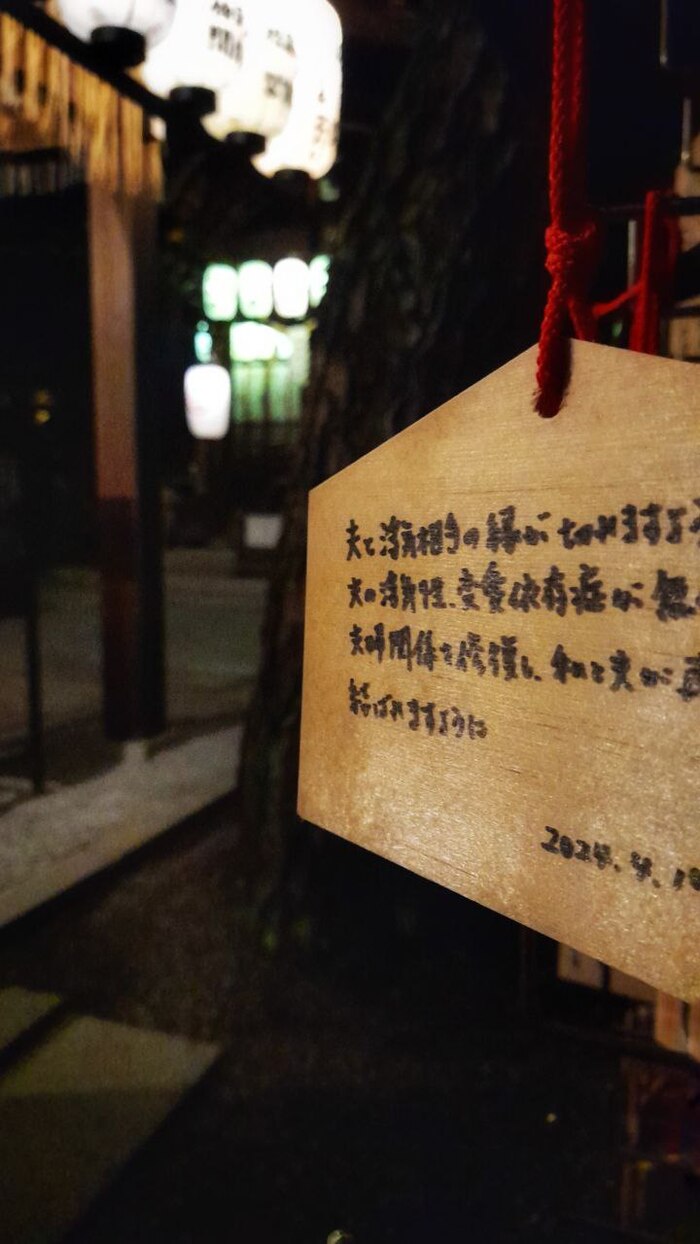 夫と浮気相手の縁が切れますよう
夫の浮気性、恋愛依存症が無
夫婦関係を修復し、私と夫が
結ばれますように
2024.4.18